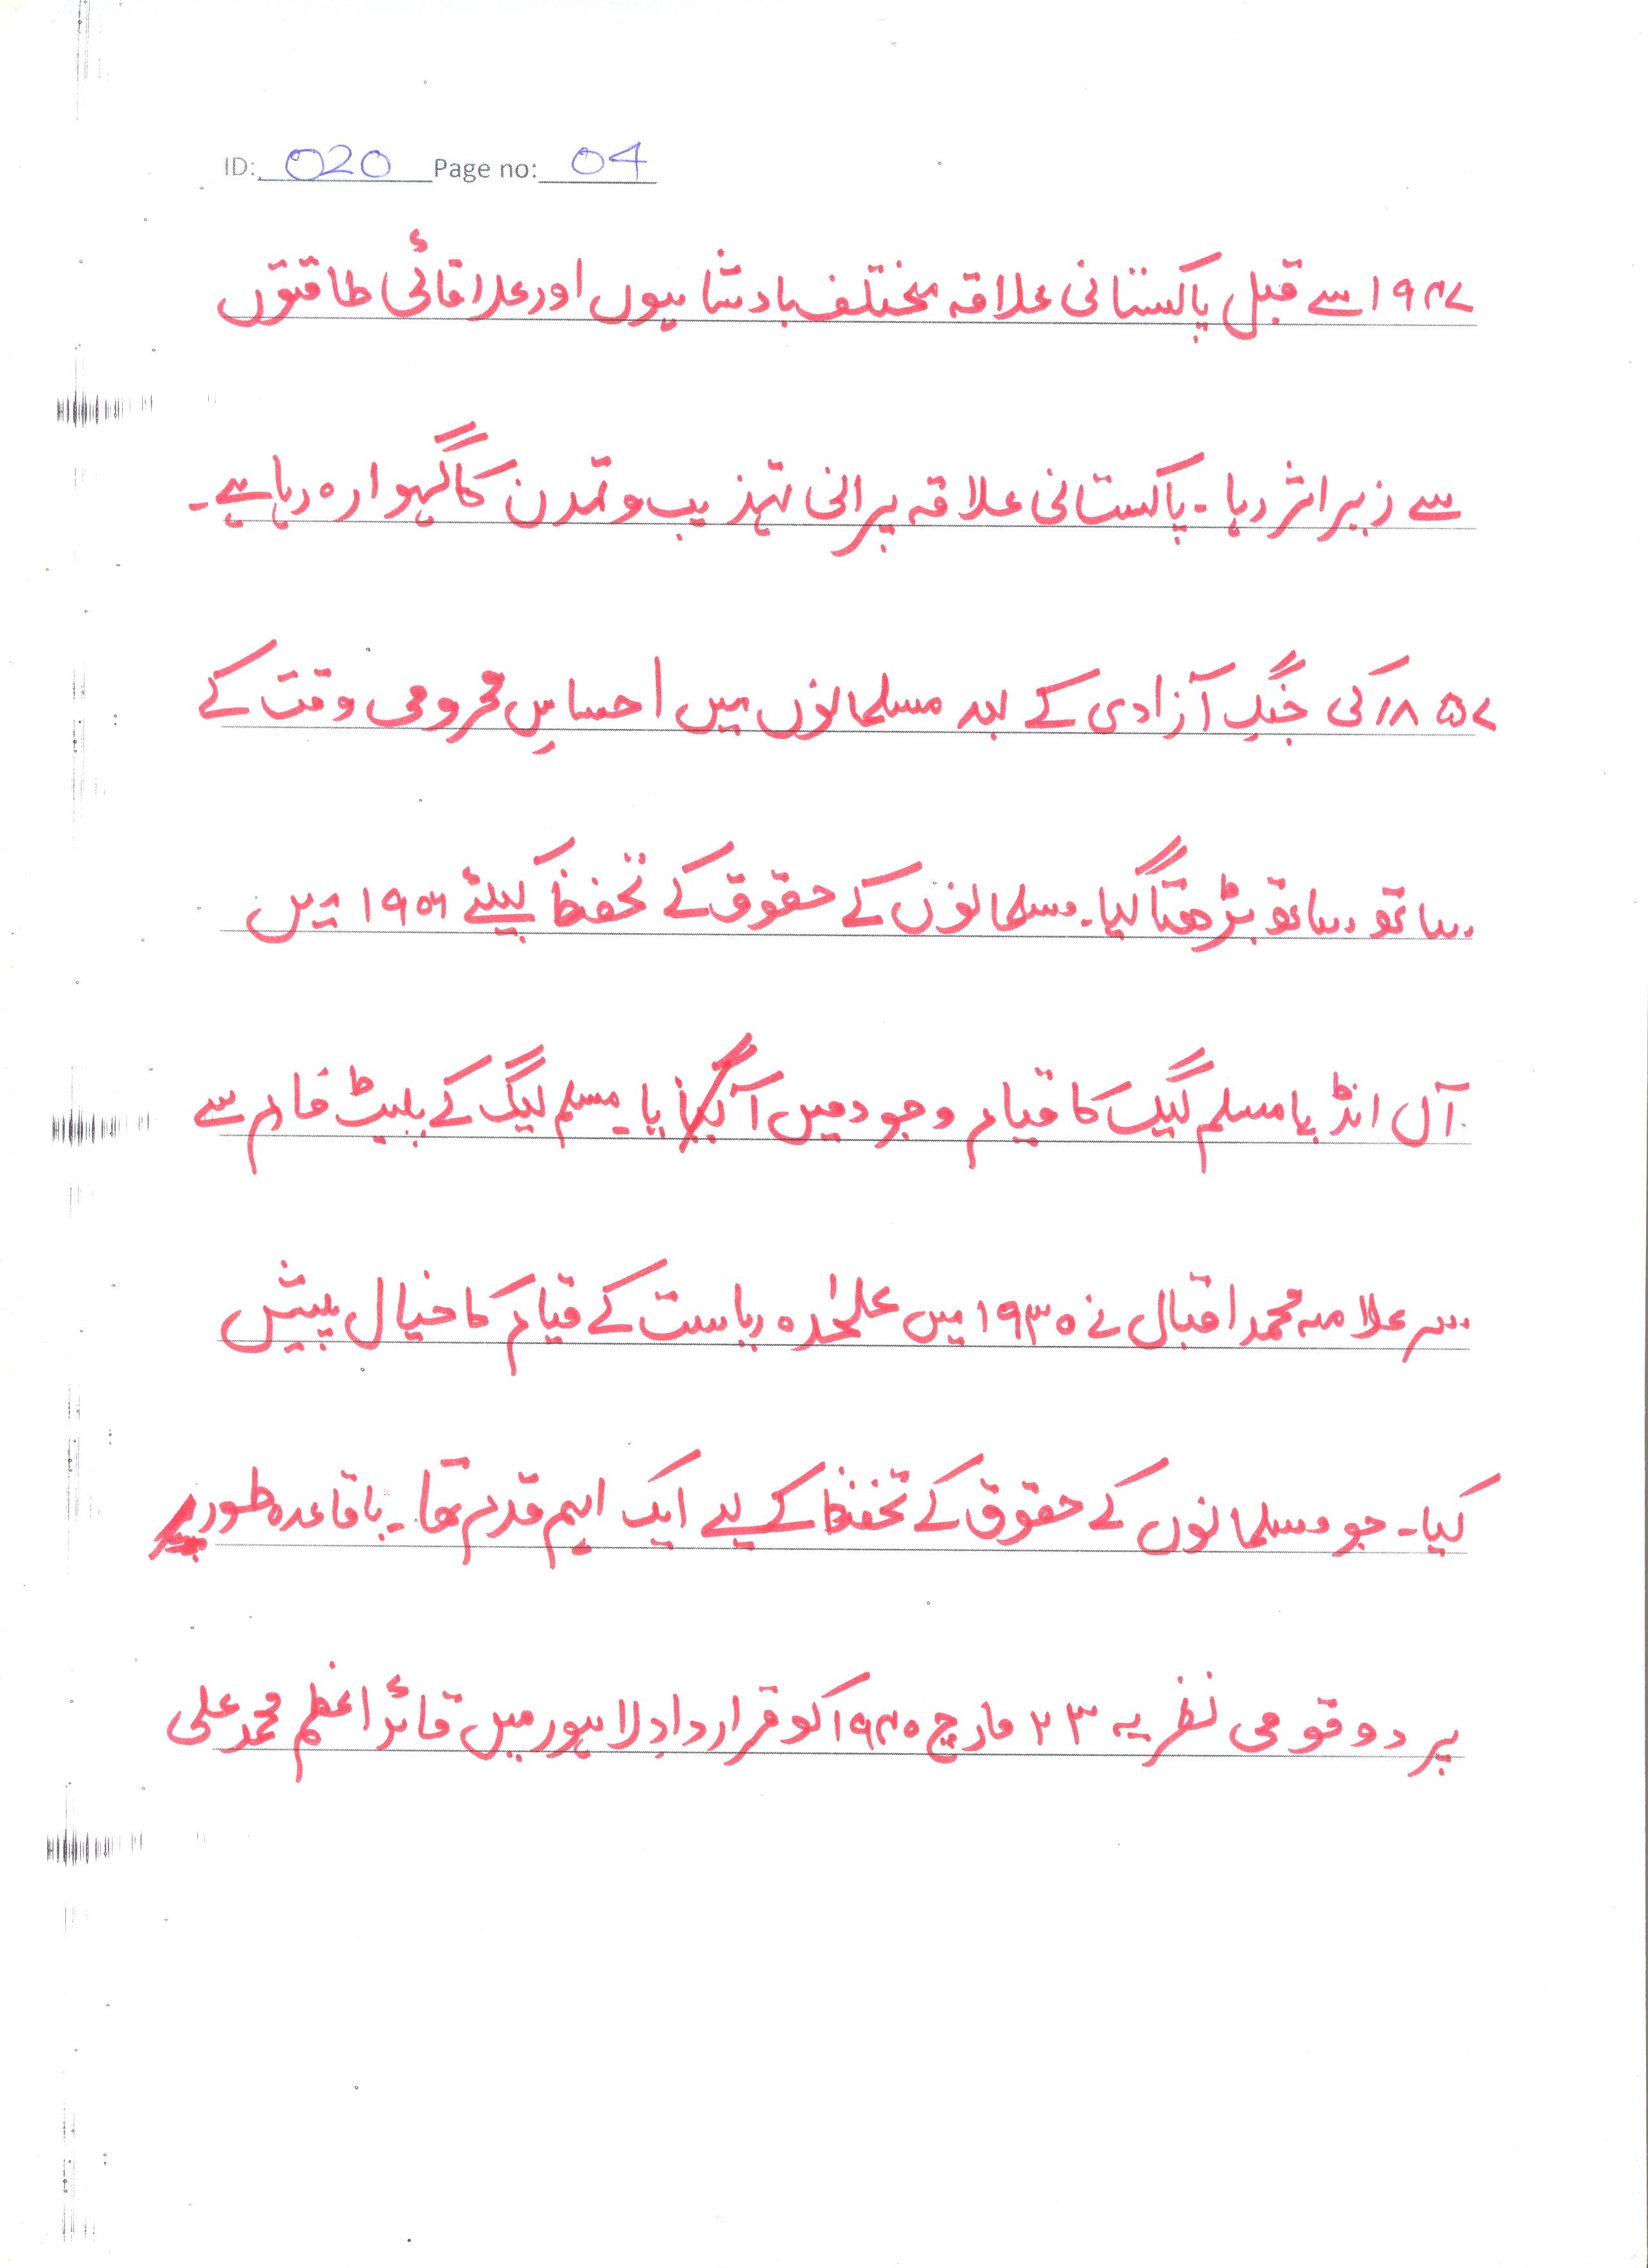 ID: 020 Page no: 04
۱۹۴۷ سے قبل پاکستانی علاقہ مختلف بادشاہیوں اور علاقائی طاقتوں
سے زیر اثر رہا۔ پاکستانی علاقہ پرانی تہذیب و تمدن کا گہوارہ رہا ہے۔
۱۸۵۷ کی جنگِ آزادی کے بعد مسلمانوں میں احساسِ محرومی وقت کے
ساتھ ساتھ بڑھتا گیا۔ مسلمانوں کے حقوق کے تحفظ کیلئے ۱۹۰۶ میں
آل انڈیا مسلم لیگ کا قیام وجود میں آ یا۔ مسلم لیگ کے پلیٹ فارم سے
سر علامہ محمد اقبال نے ۱۹۳۰ میں علیٰحدہ ریاست کے قیام کا خیال پیش
کیا۔ جو مسلمانوں کے حقوق کے تحفظ کے لیے ایک اہم قدم تھا۔ باقاعدہ طور
پر دو قومی نظریہ ۲۳ مارچ ۱۹۴۰ کو قراردادِ لاہور میں قائد اعظم محمد علی